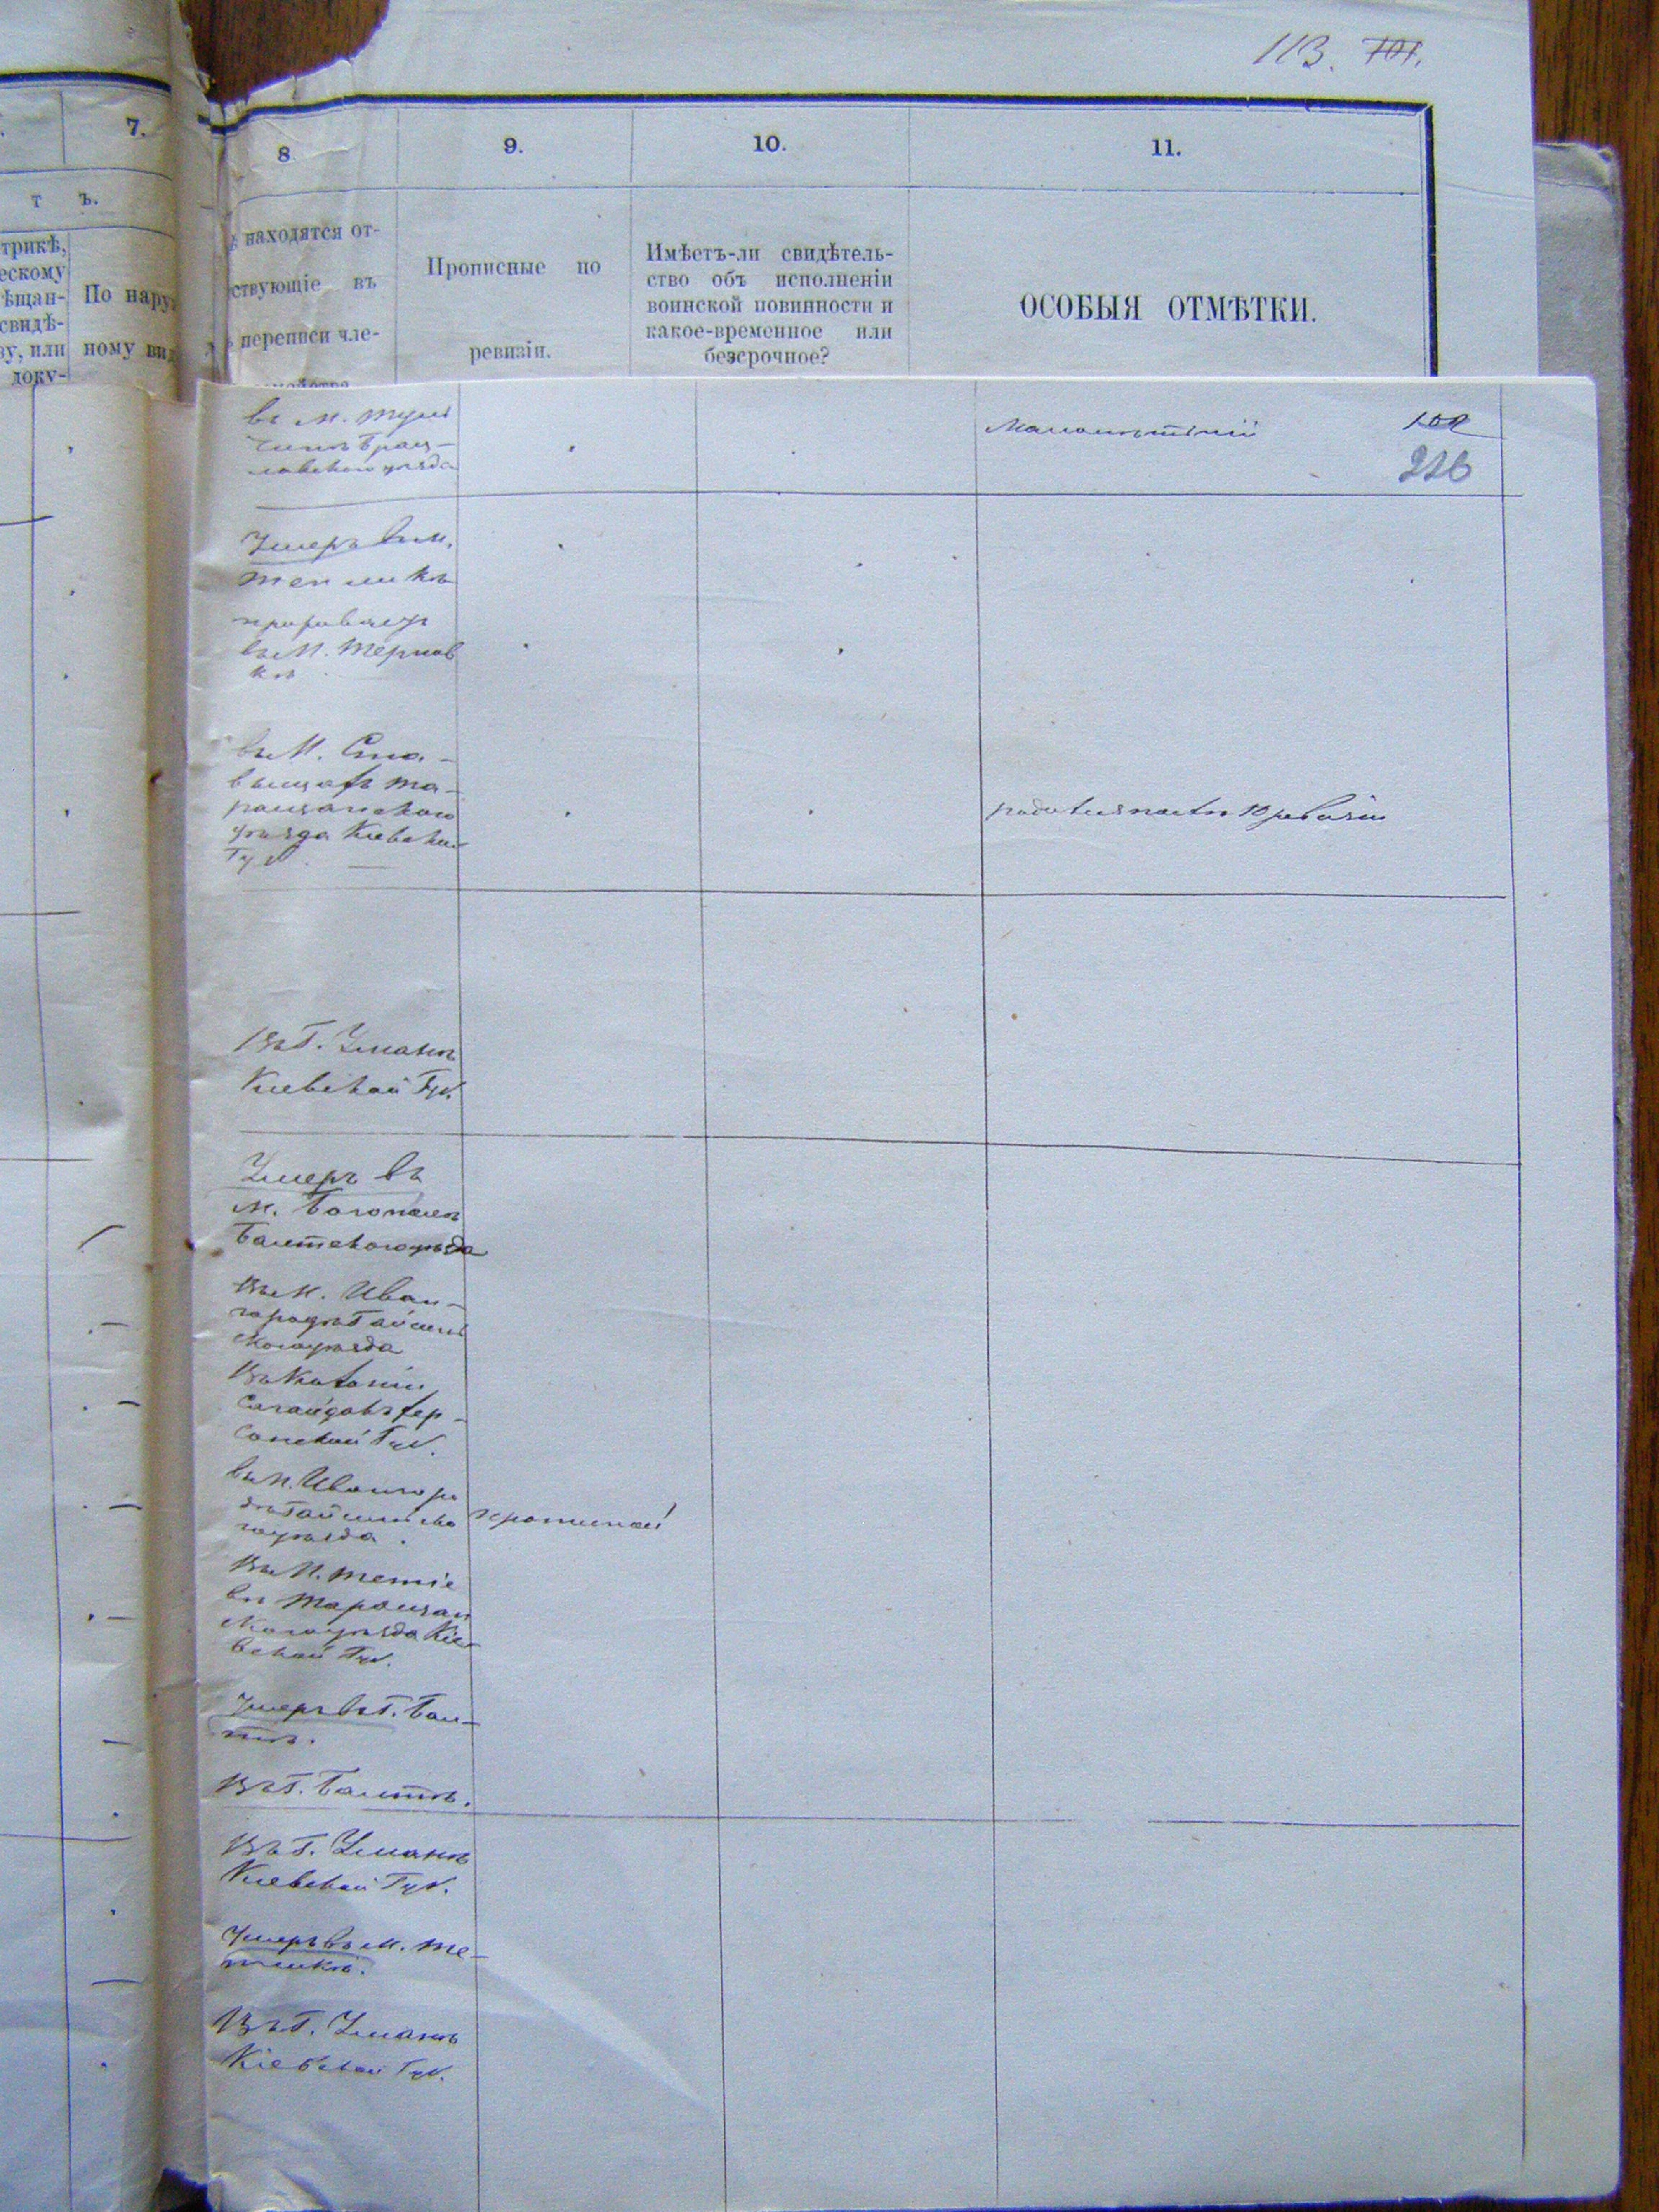 113. 101.
7.
8
9.
10.
11.
т ъ.
трикѣ,
ескому
ѣщан-
свидѣ-
ву, или
доку-
По нару
ному вид
находятся от-
ствующіе въ
переписи чле-
Прописные по
ревизіи.
Имѣетъ-ли свидѣтель-
ство объ исполненіи
воинской повинности и
какое-временное или
безсрочное?
ОСОБЫЯ ОТМѢТКИ.
въ м. Туль
чинѣ Брац-
лавскаго уѣзда
Малолѣтній
102
216
Умеръ въ м.
Теп ликѣ
въ м. Тернов
кѣ
въ м. Ста-
вищахъ Та-
ращанскаго
уѣзда Кіевской
Губ.
родился послѣ 10 ревизіи
Въ Г. Умань
Кіевской Губ.
Умеръ въ
м. Богополѣ
Балтскаго уѣзда
Въ м. Иван-
городѣ Гайсин
скаго уѣзда
Въ Колоніи
Сагайдакъ Хер-
сонской Губ.
въ м. Ивангоро
дѣ Гайсинска
го уѣзда.
прописной
Въ м. Тетіе
вѣ Таращан
скаго уѣзда Кіе-
вской Губ.
Умеръ въ Г. Бал-
тѣ.
Въ Г. Балтѣ.
Въ Г. Умань
Кіевской Губ.
Умеръ въ м. Те-
пликѣ.
Въ Г. Умань
Кіевской Губ.